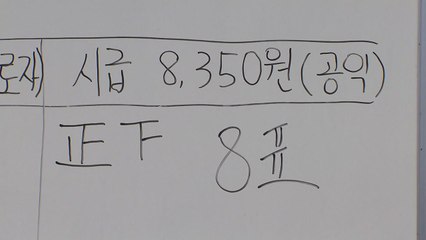 로자) 시급 8,350원(공익)
正下 8표